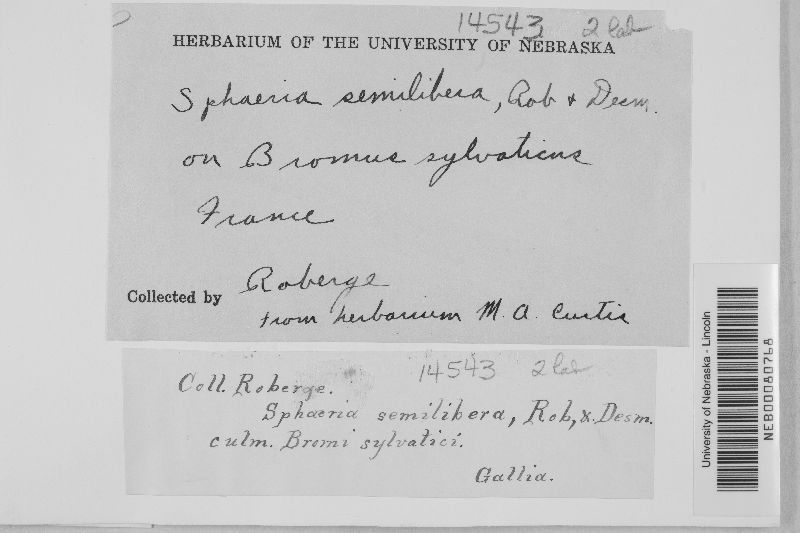 14543 2 lab
HERBARIUM OF THE UNIVERSITY OF NEBRASKA
Sphaeria semilibera, Rob & Desm.
on Bromus sylvaticus
France
Collected by Roberge
from herbarium M. A. Curtis
14543 2 lab
Coll. Roberge.
Sphaeria semilibera, Rob, &. Desm.
culm. Bromi sylvatici.
Gallia.
University of Nebraska - Lincoln
NEB00080768